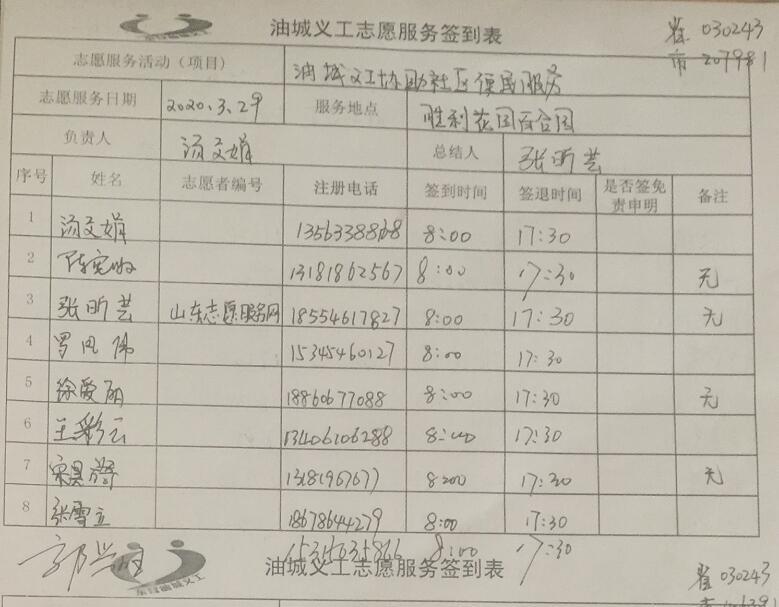 油城义工志愿服务签到表 省 030243
市 207981
志愿服务活动（项目） 油城义工协助社区便民服务
志愿服务日期 2020.3.29 服务地点 胜利花园百合园
负责人 汤文娟 总结人 张昕芸
序号 姓名 志愿者编号 注册电话 签到时间 签退时间 是否签免责申明 备注
1 汤文娟 8:00 17:30
2 13181862567 8:00 17:30 无
3 张昕芸 山东志愿服务网 18554617827 8:00 17:30 无
4 罗凤伟 15345460127 8:00 17:30
5 徐爱丽 18860677088 8:00 17:30 无
6 王彩云 13406106288 8:00 17:30
7 13181967677 8:00 17:30 无
8 张雪立 18678644279 8:00 17:30
8:00 17:30
东营油城义工 油城义工志愿服务签到表 省 030243